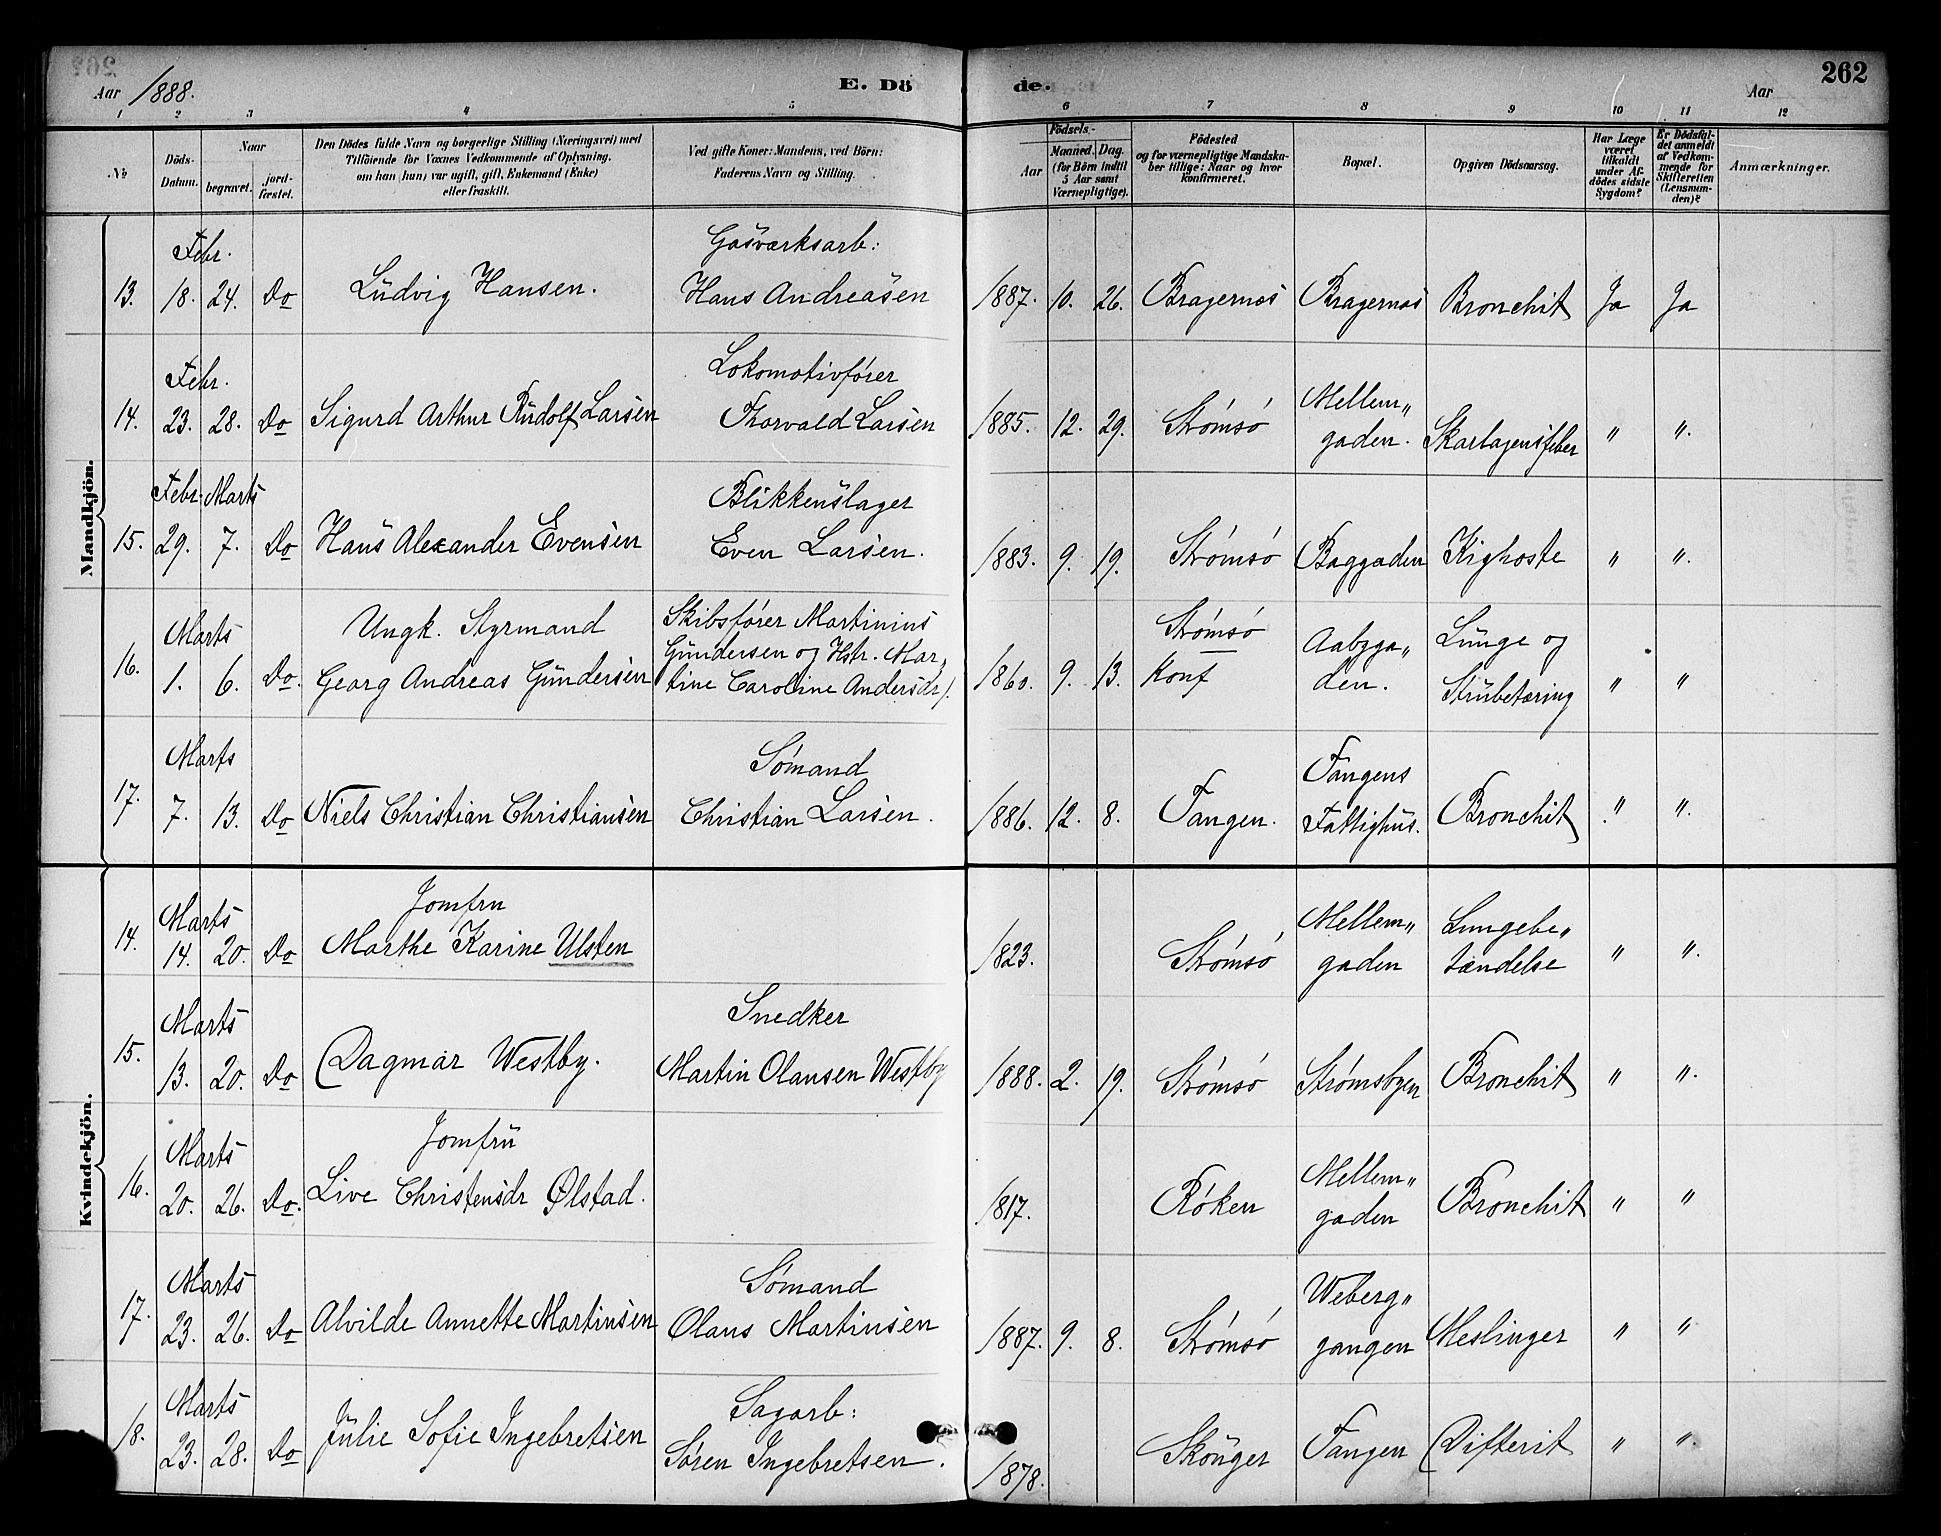 Aar 1888.
E. Dö
de.
Aar
262
1 2 3 4 5 6 7 8 9 10 11 12
No
Döds-
Datum.
Naar
begravet.
jord-
fæstet.
Den Dödes fulde Navn og borgerlige Stilling (Næringsvei) med
Tilföiende for Voxnes Vedkommende af Oplysning,
om han (hun) var ugift, gift, Enkemand (Enke)
eller fraskilt.
Ved gifte Koner: Mandens, ved Börn:
Faderens Navn og Stilling.
Födsels-
Aar
Maaned. Dag.
(for Börn indtil
5 Aar samt
Værnepligtige).
Födested
og for værnepligtige Mandska-
ber tillige: Naar og hvor
konfirmeret.
Bopæl.
Opgiven Dödsaarsag.
Har Læge
været
tilkaldt
under Af-
dödes sidste
Sygdom?
Er Dödsfal-
det anmeldt
af Vedkom-
mende for
Skifteretten
(Lensman-
den)?
Anmærkninger.
Mandkjön.
Febr. Gasværksarb:
13. 18. 24. Do Ludvig Hansen. Hans Andreasen 1887. 10. 26. Bragernæs Bragernæs Bronchit Ja Ja
Febr. Lokomotivfører Mellem„
14. 23. 28. Do Sigurd Arthur Rudolf Larsen Thorvald Larsen 1885. 12. 29. Strømsø gaden. Skarlagensfeber " ".
Febr. Marts Blikkenslager
15. 29. 7. Do Hans Alexander Evensen Even Larsen. 1883. 9. 19. Strømsø Baggaden Kighoste " ".
Marts Ungk. Styrmand Skibsfører Martinius Strømsø Aabyga„ Lunge og
Gundersen og Hstr. Mar„
16. 1. 6. Do. Georg Andreas Gundersen tine Caroline Andersdr/. 1860. 9. 13. Konf den. Strubetæring " "
Marts Sømand Tangens
17. 7. 13. Do Niels Christian Christiansen Christian Larsen. 1886. 12. 8. Tangen. Fattighus. Bronchit " ".
Kvindekjön.
Marts Jomfru Mellem„ Lungebe„
14. 14. 20. Do Marthe Karine Ulsten 1823. Strømsø gaden tændelse " ".
Marts Snedker
15. 13. 20. Do Dagmar Westby. Martin Olausen Westby 1888. 2. 19. Strømsø Strømsbyen Bronchit " ".
Marts Jomfru Mellem„
16. 20. 26. Do. Live Christensdr Ølstad. 1817. Røken gaden Bronchit " "
Marts Sømand Weberg„
17. 23. 26. Do Alvilde Annette Martinsen Olaus Martinsen 1887. 9. 8. Strømsø gangen Meslinger " "
Marts Sagarb:
18. 23. 28. Do Julie Sofie Ingebretsen Søren Ingebretsen. 1878. Skouger Tangen Difterit " ".